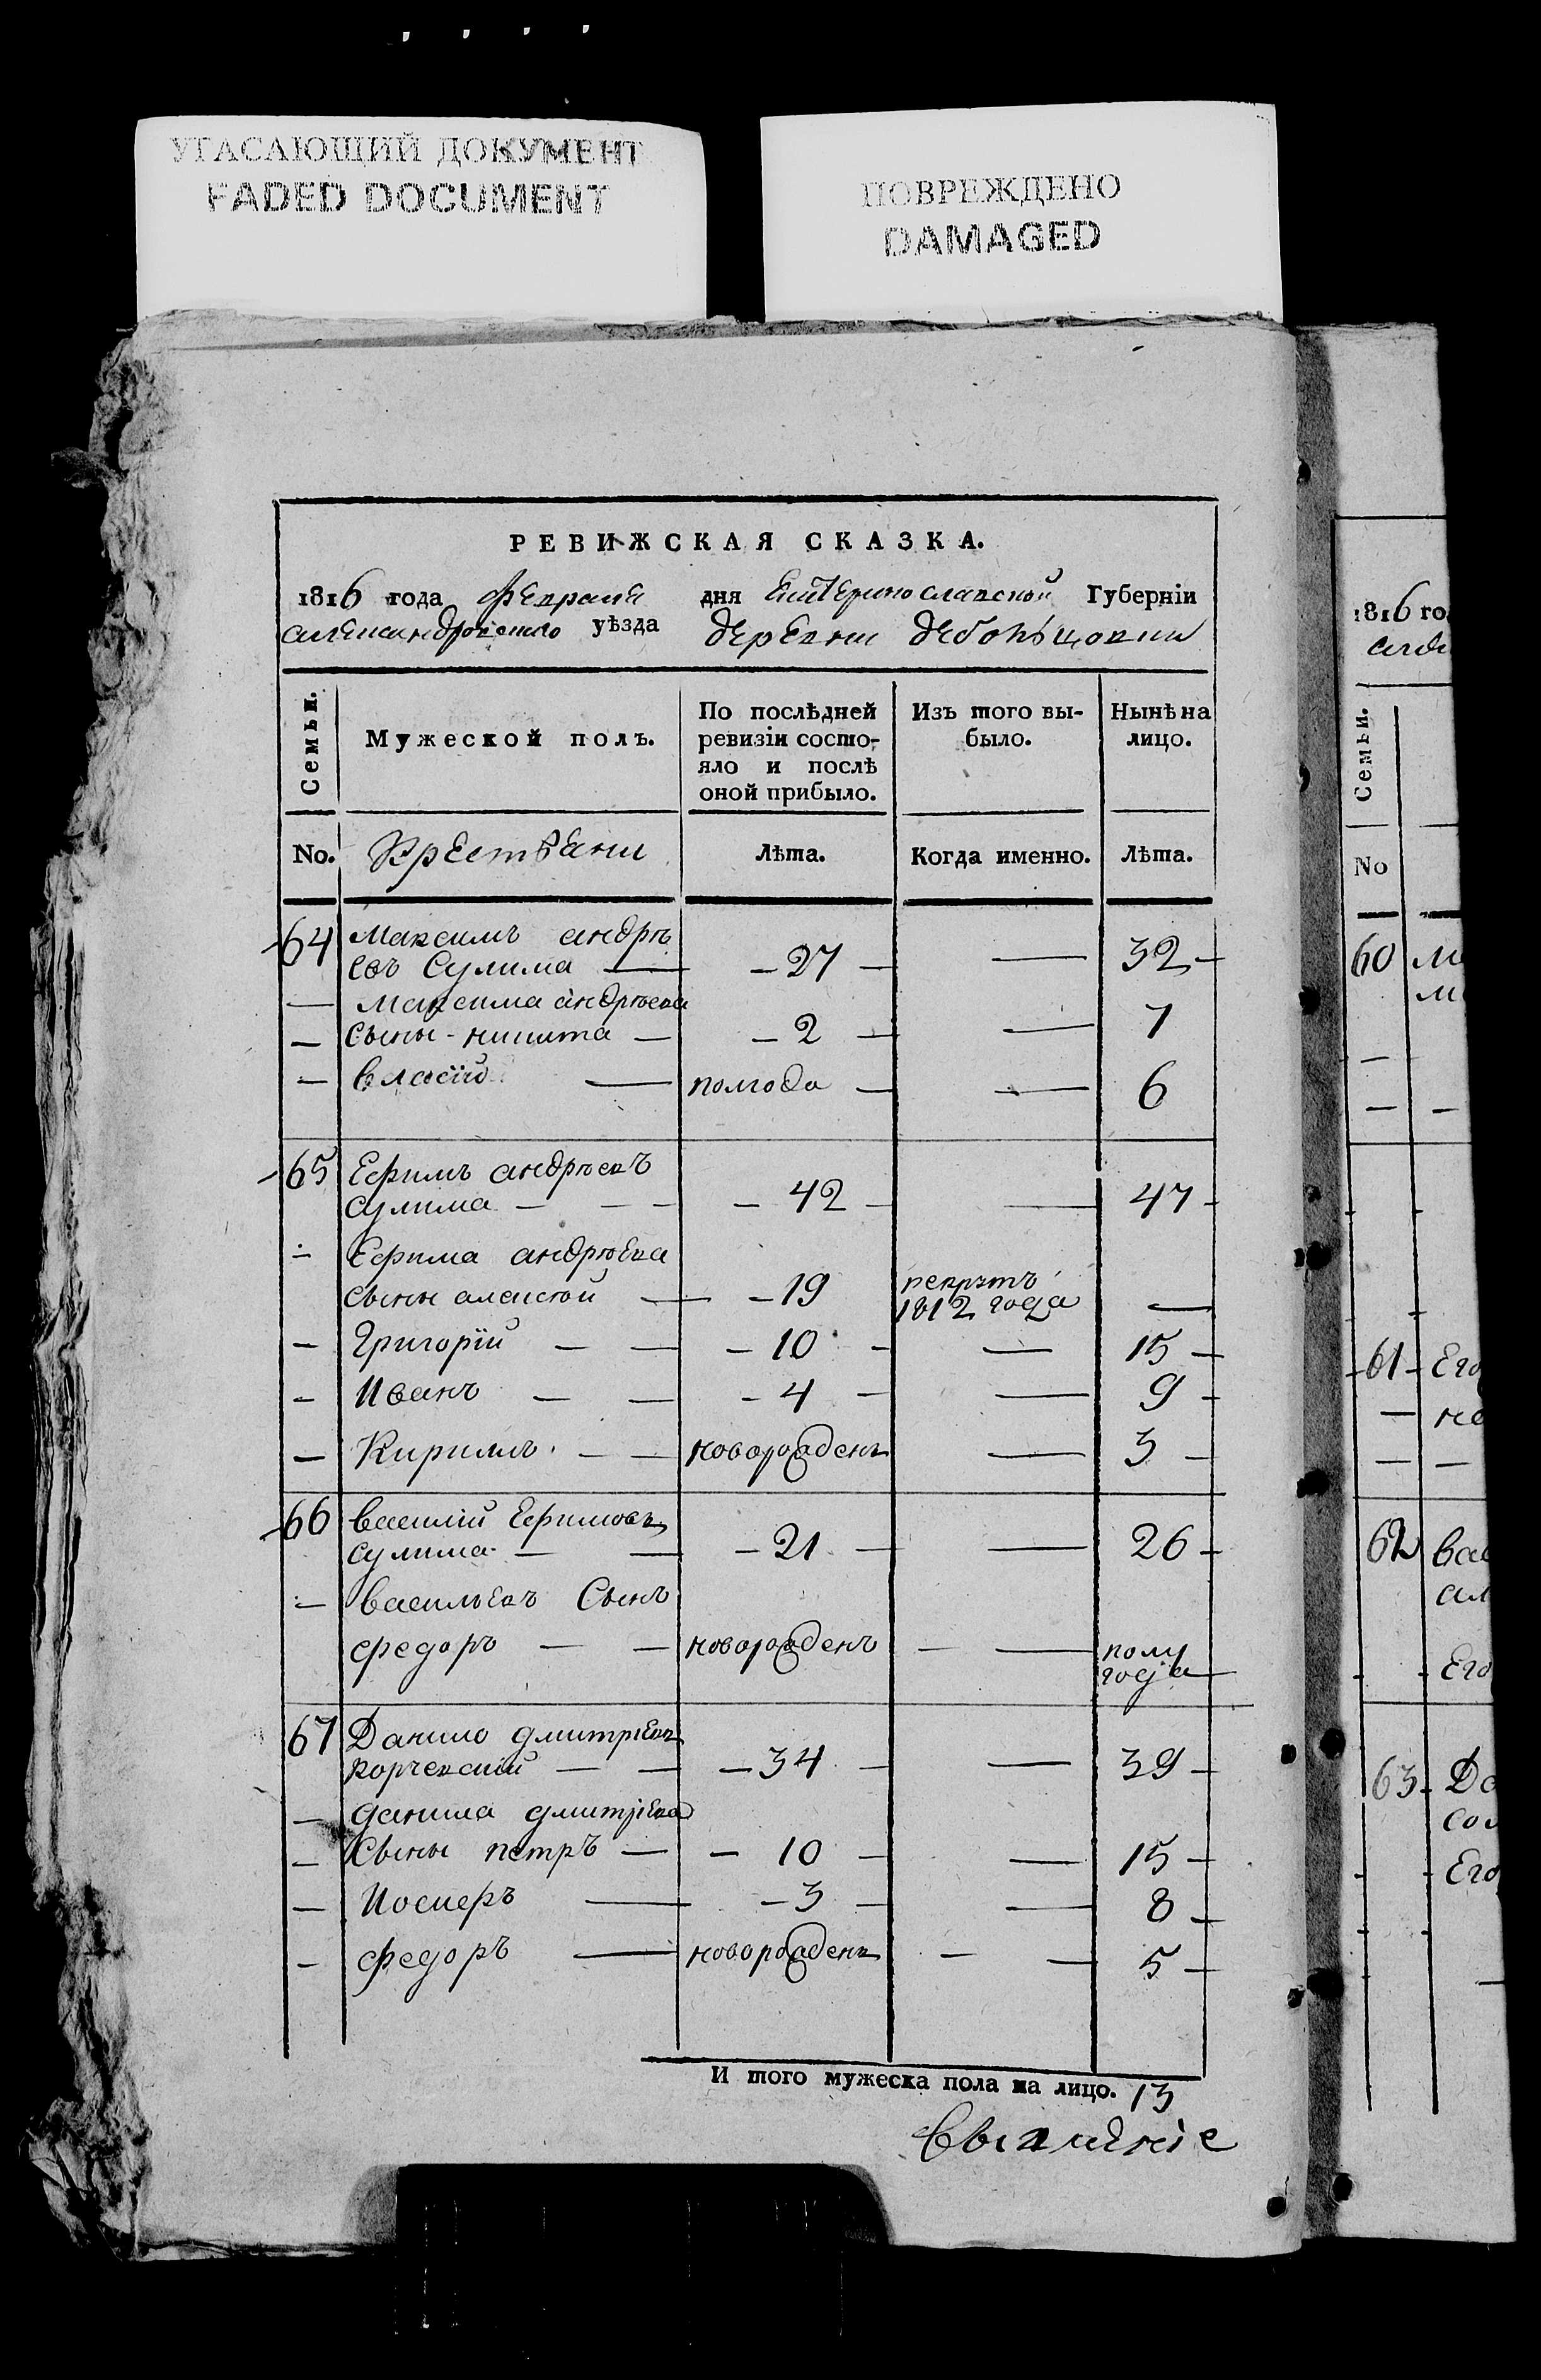 УГАСАЮЩИЙ ДОКУМЕНТ
FADED DOCUMENT
ПОВРЕЖДЕНО
DAMAGED
РЕВИЖСКАЯ СКАЗКА.
1816 года февраля дня Екатеринославской Губерніи
александровского уѣзда деревни
Семьи.
Мужеской полъ.
По послѣдней ревизіи состояло и послѣ оной прибыло.
Изъ того выбыло.
Нынѣ на лицо.
No. Крестьяни Лѣта. Когда именно. Лѣта.
64 Максимъ андрѣ
евъ Сулима — 27 — — 32 —
— Максима андрѣева
— сыны - никита — — 2 — — 7
— власій — полгода — — 6
65 Ефимъ андрѣевъ
сулима — — — 42 — — 47 —
— Ефима андрѣева
сыны алексѣй — — 19 рекрутъ 1812 года —
— Григорій — — — 10 — — 15 —
— Иванъ — — — 4 — — 9 —
— Кирилъ — — новорожденъ — 3 —
66 василій Ефимовъ
сулима — — — 21 — — 26 —
— васильевъ Сынъ
федоръ — — новорожденъ — — полу года —
67 Данило дмитріевъ
корчевскій — — — 34 — — 39 —
— данила дмитріева
— Сыны петръ — — 10 — — 15 —
— — 3 — — 8 —
— федоръ — новорожденъ — — 5 —
И того мужеска пола на лицо. 13
1816 го
Семьи.
No
60
61 Его
62 вас
63 Да
Его